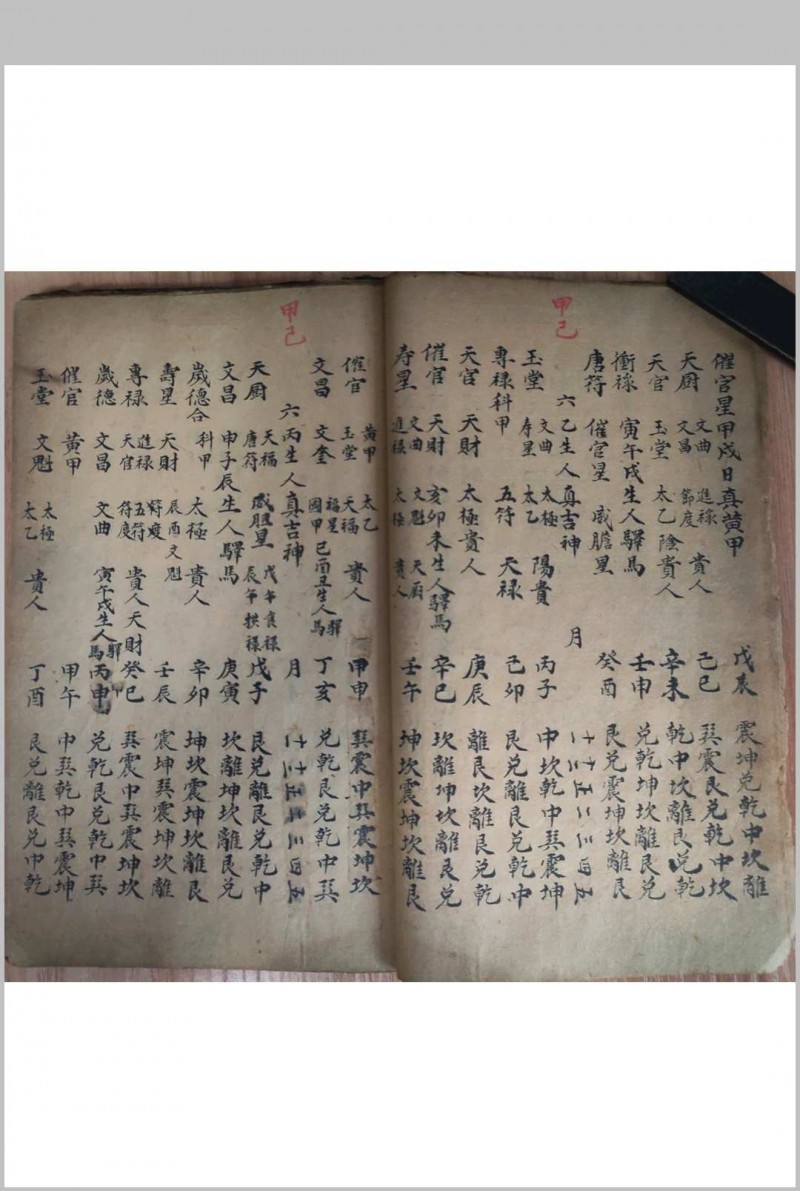 甲己
催官星甲戌日真黃甲 戊辰 震坤兌乾中坎離
天厨 文曲 文昌 進禄 節度 貴人 己巳 巽震艮兌乾中坎
天官 玉堂 太乙陰貴人 辛未 乾中坎離艮兌乾
衝禄 寅午戌生人驛馬 壬申 兌乾坤坎離艮兌
唐符 催官星 咸膽星 癸酉 艮兌震坤坎離艮
六乙生人真吉神 月
玉堂 文曲 寿星 太極 太乙 陽貴 丙子 中坎乾中巽震坤
專禄科甲 五符 天禄 己卯 艮兌離艮兌乾中
天官 天財 太極貴人 庚辰 離艮坎離艮兌乾
催官 天財 亥卯未生人驛馬 辛巳 坎離坤坎離艮兌
寿星 文曲 進禄 文魁 太極 天厨 貴人 壬午 坤坎震坤坎離艮
甲己
催官 黃甲 玉堂 太乙 天福 貴人 甲申 巽震中巽震坤坎
文昌 文奎 福星 國甲 巳酉丑生人驛馬 丁亥 兌乾艮兌乾中巽
六丙生人真吉神 月
天厨 天福 唐符 咸胆星 戊午食禄 辰午拱禄 戊子 艮兌離艮兌乾中
文昌 申子辰生人驛馬 庚寅 坎離坤坎離艮兌
歲德合 科甲 太極貴人 辛卯 坤坎震坤坎離艮
壽星 天財 辰酉文魁 壬辰 震坤巽震坤坎離
專禄 進禄 天官 五符 符度 貴人天財 癸巳 巽震中巽震坤坎
歲德 文昌 文曲 寅午戌生人驛馬 丙申 兌乾艮兌乾中巽
催官 黃甲 甲午 中巽乾中巽震坤
玉堂 文魁 太極 太乙 貴人 丁酉 艮兌離艮兌中乾